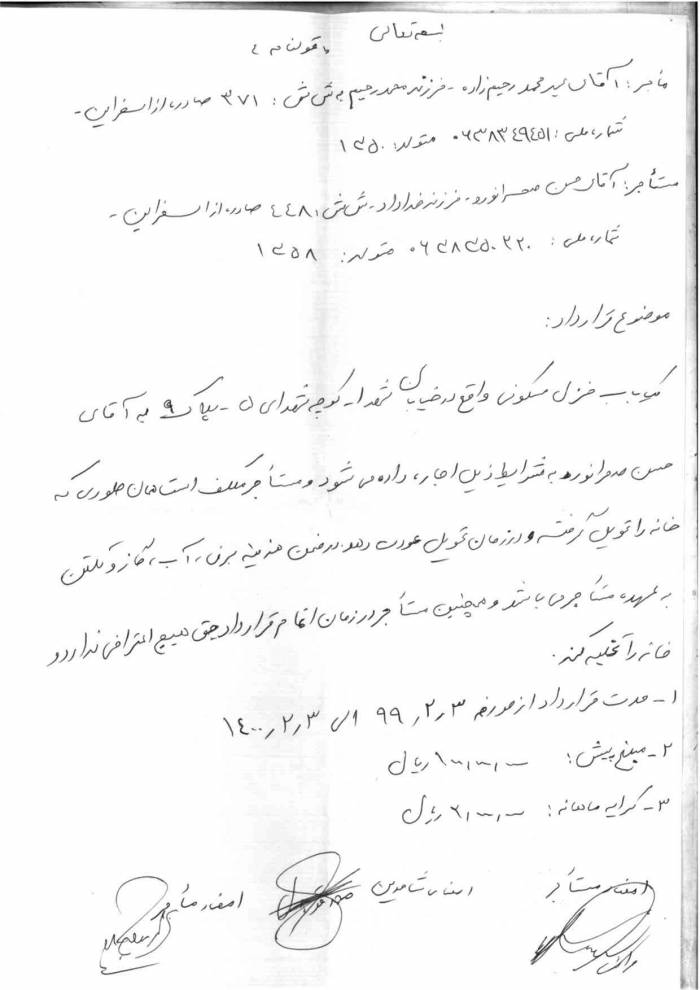 بسمه تعالی
« قولنامه »
مأجر: آقای سید محمد رحیم زاده - فرزند محمد رحیم به ش ش: ۳۷۱ صادره از اسفراین -
شماره ملی: ۰۶۳۸۳۴۹۴۵۱ متولد: ۱۳۵۰
مستأجر: آقای حسن صحرانورد - فرزند خداداد - ش ش ۴۴۸۱ صادره از اسفراین -
شماره ملی: ۰۶۳۸۳۵۰۲۲۰ متولد: ۱۳۵۸
موضوع قرارداد:
یک باب منزل مسکونی واقع در خیابان شهدا - کوچه شهدای ۵ - پلاک ۹ به آقای
حسن صحرانورد به شرایط ذیل اجاره داده می شود و مستأجر مکلف است همان طوری که
خانه را تحویل گرفته در زمان تحویل عودت دهد در ضمن هزینه برق، آب، گاز و تلفن
به عهده مستأجر می باشد و همچنین مستأجر در زمان اتمام قرارداد حق هیچ اعتراضی ندارد و
خانه را تخلیه کند.
۱- مدت قرارداد از مورخه ۹۹,۲,۳ الی ۱۴۰۰,۲,۳
۲- مبلغ پیش: ریال
۳- کرایه ماهانه: ریال
امضاء مستأجر
امضاء شاهدین
امضاء مأجر